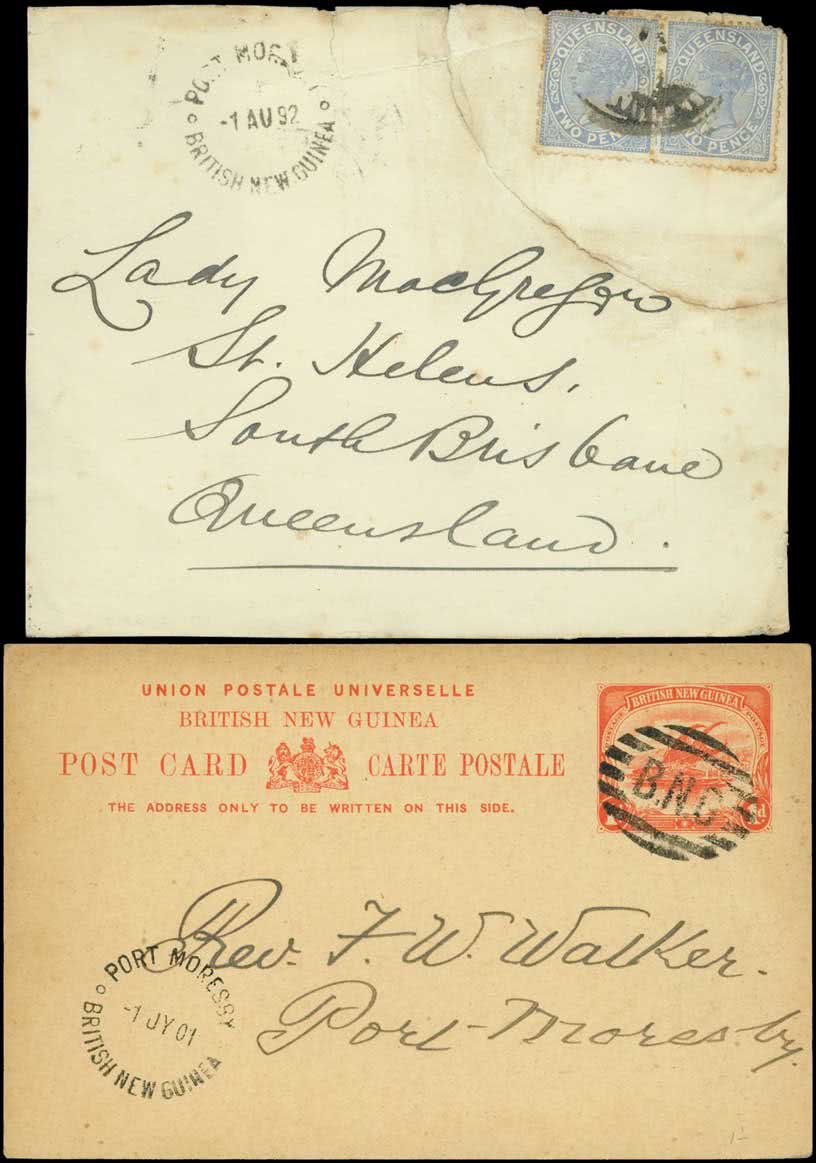 PORT MORE
-1 AU 92
BRITISH NEW GUINEA
QUEENSLAND QUEENSLAND
TWO PEN WO PENCE
Lady MacGregor
St. Helens,
South Brisbane
Queensland.
UNION POSTALE UNIVERSELLE
BRITISH NEW GUINEA
POST CARD CARTE POSTALE
THE ADDRESS ONLY TO BE WRITTEN ON THIS SIDE.
BRITISH NEW GUINEA
POSTAGE POSTAGE
B.N.G.
1d
Rev. F. W. Walker.
Port Moresby.
PORT MORESBY
-1 JY 01
BRITISH NEW GUINEA
1-